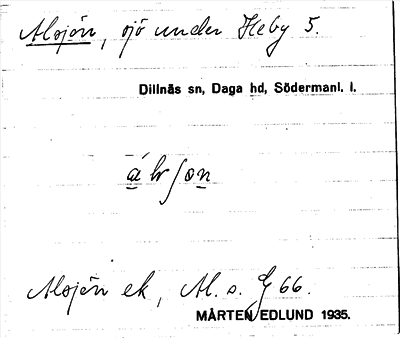 Alsjön, sjö under Heby 5.
Dillnäs sn, Daga hd, Södermanl. l.
Alsjön ek, Al. s. G 66.
MÅRTEN EDLUND 1935.